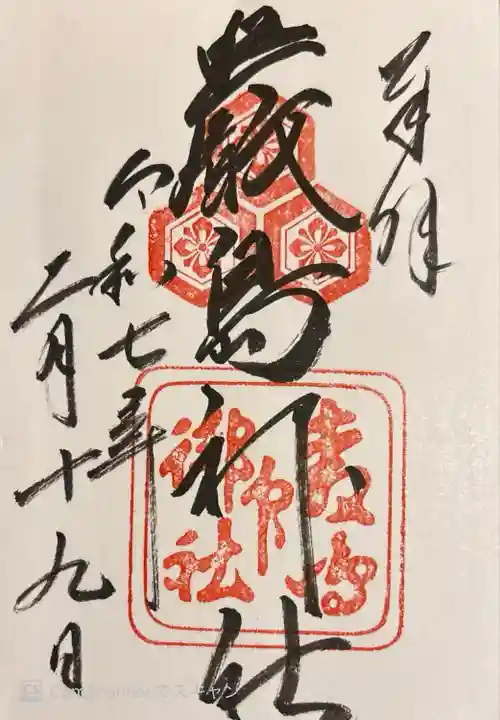 奉拝
厳島神社
令和七年
二月十九日
厳島
神
御社
CamScannerでスキャン